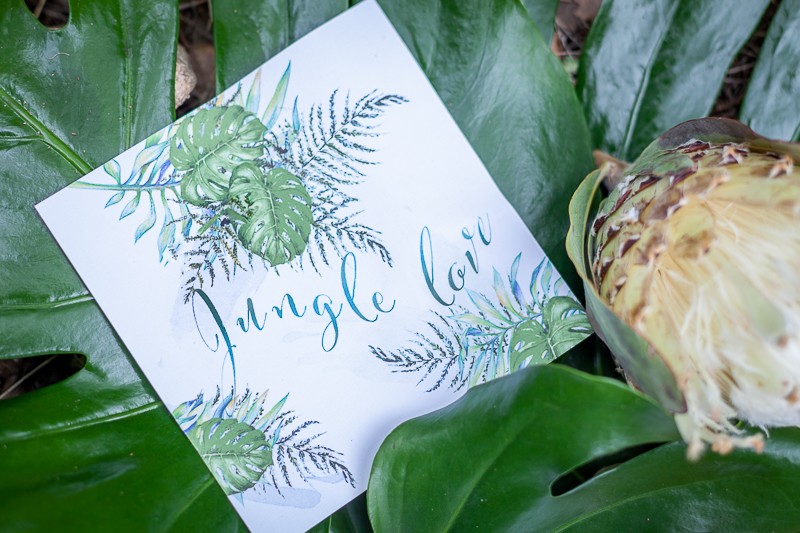 Jungle love